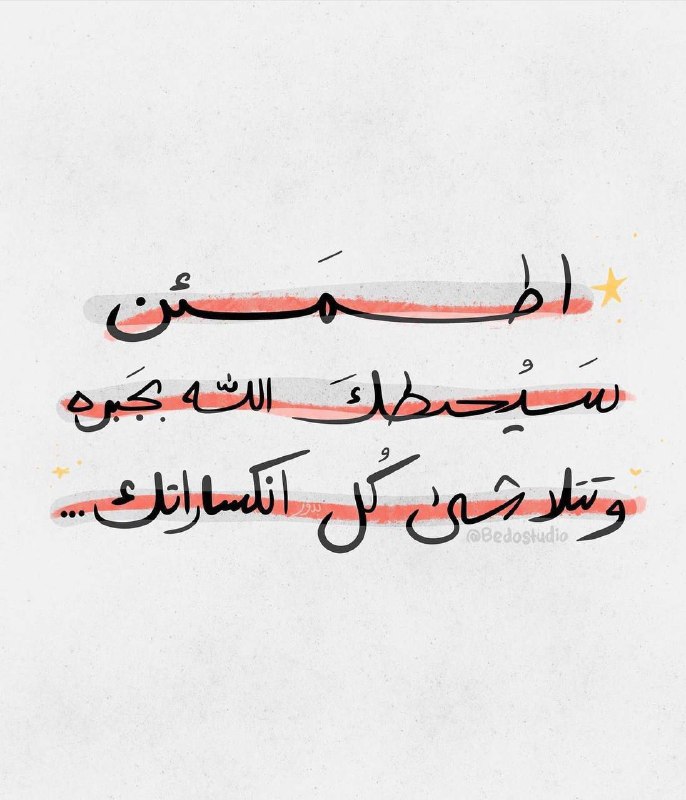 اطـمَـئن
سَـيُحيطكَ اللّه بجَبره
وتَتلاشىٰ كُل انكساراتك...
بدور
@Bedostudio